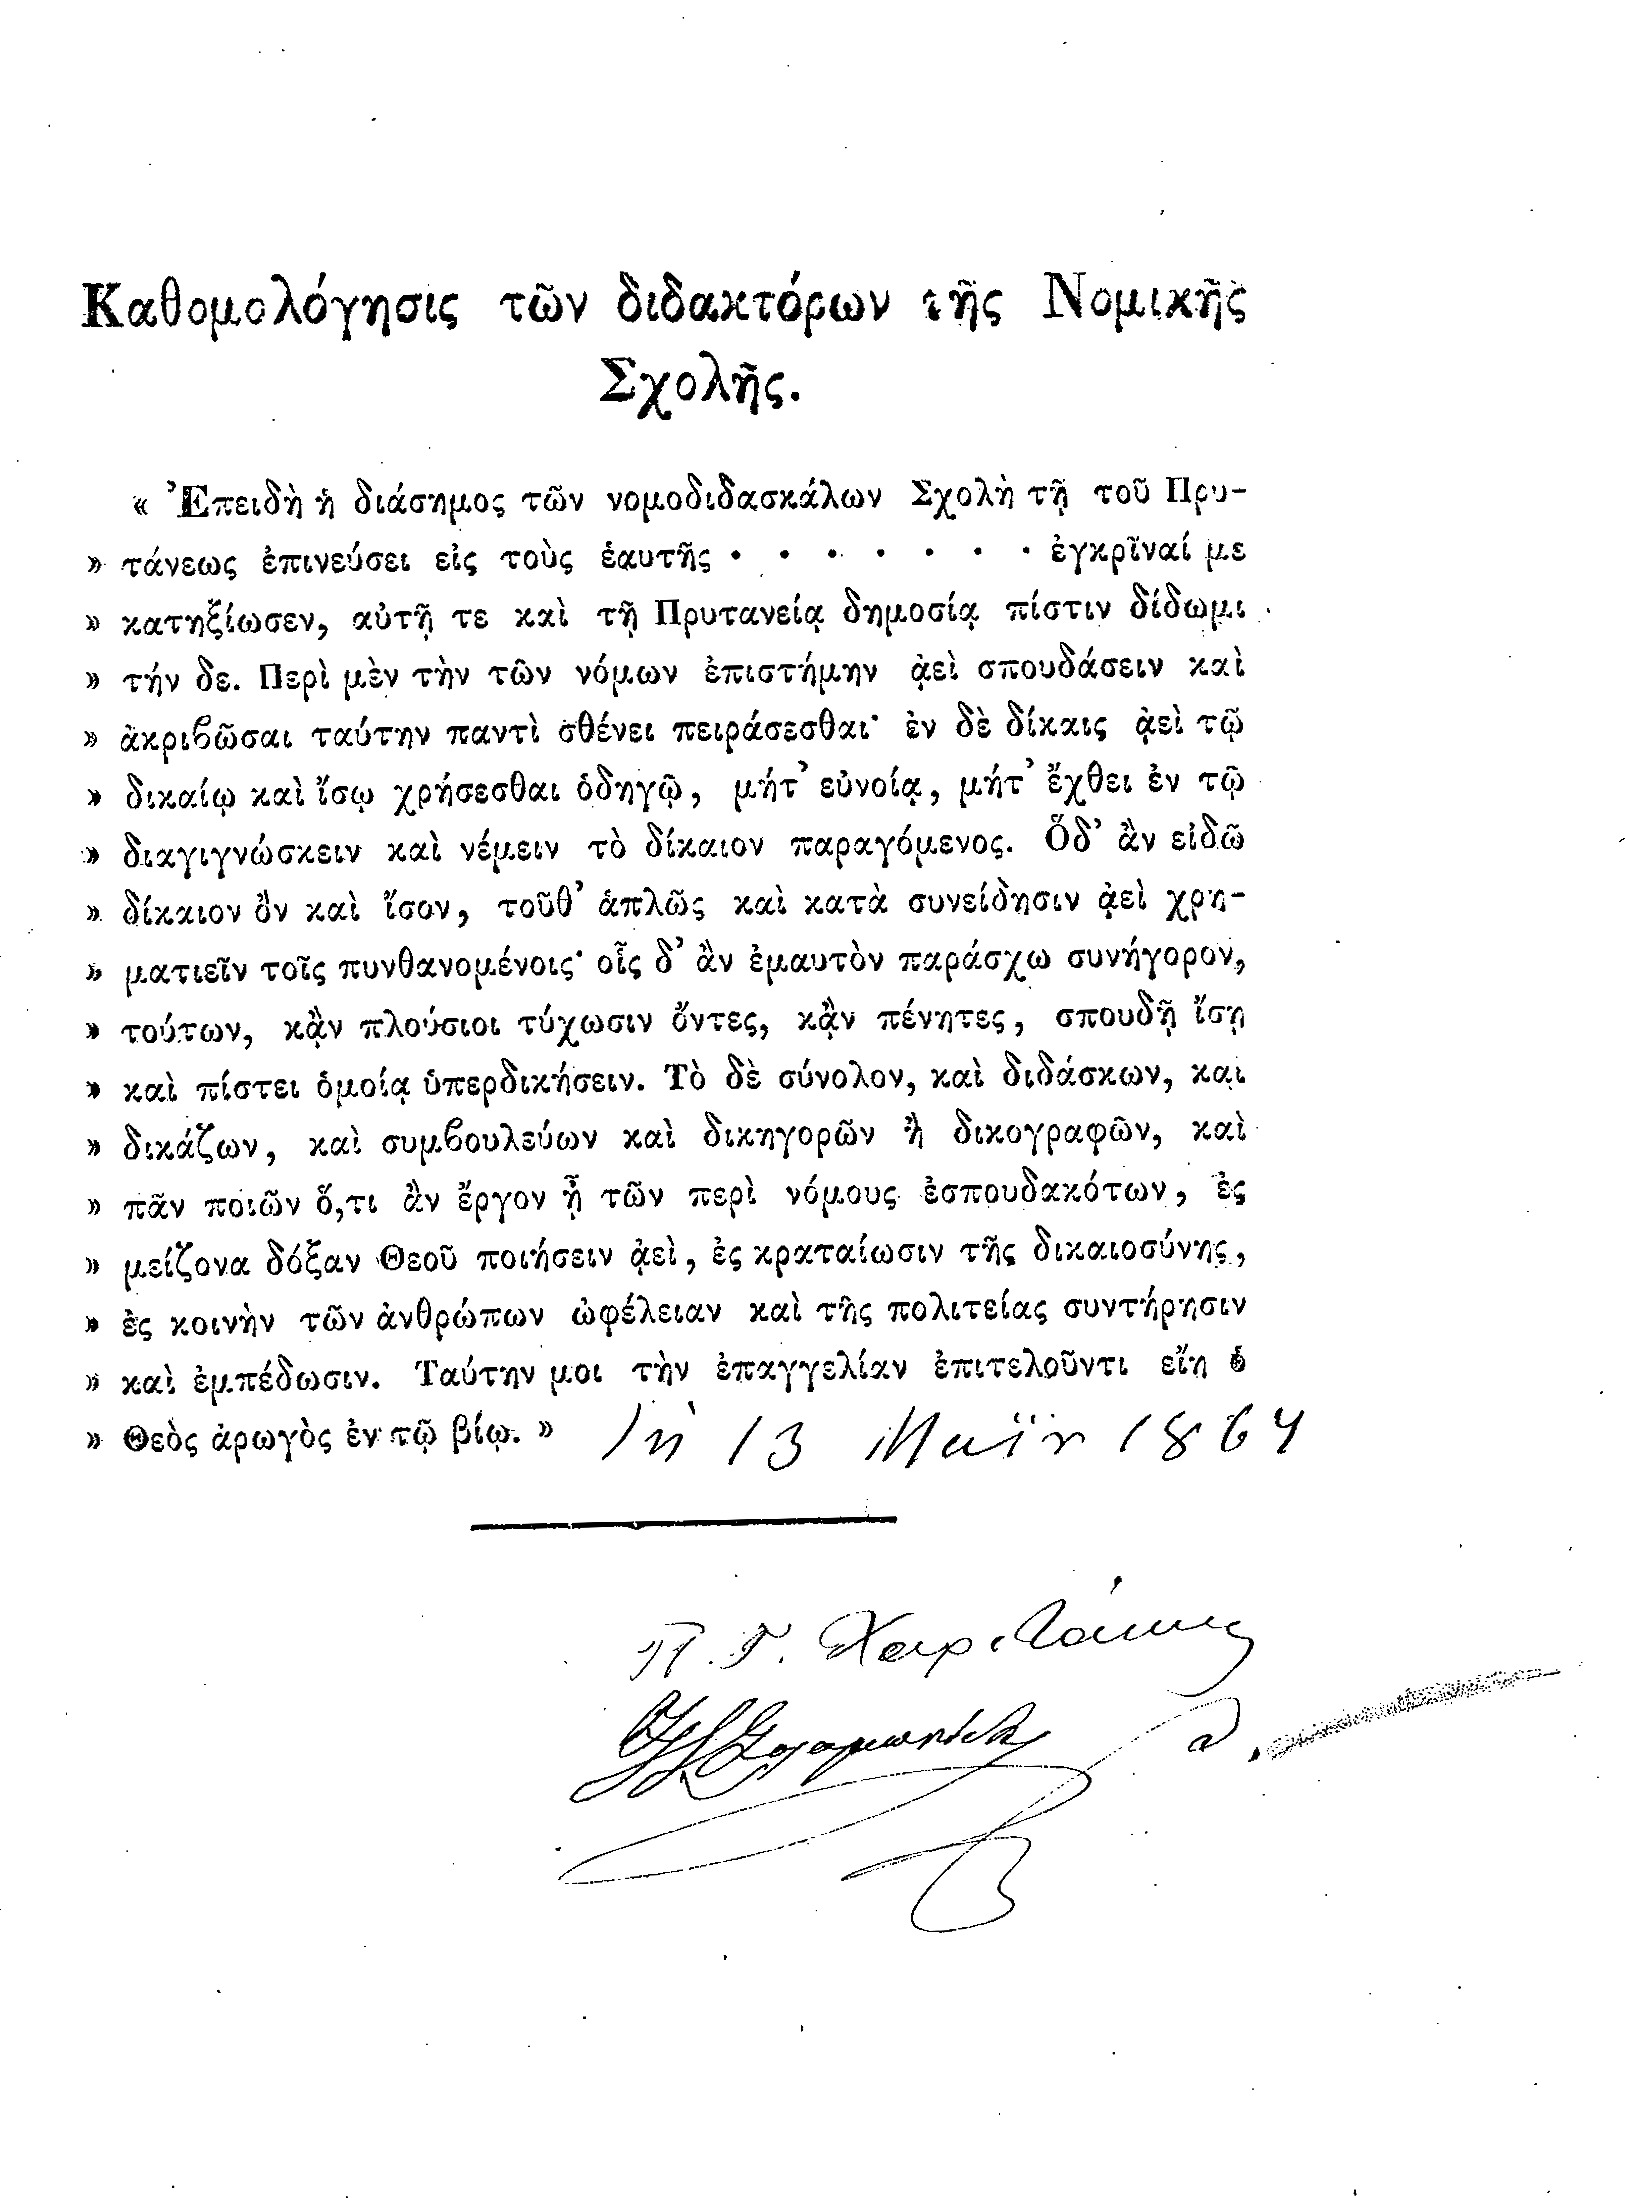 Καθομολόγησις τῶν διδακτόρων τῆς Νομικῆς
Σχολῆς.
« Ἐπειδὴ ἡ διάσημος τῶν νομοδιδασκάλων Σχολὴ τῇ τοῦ Πρυ-
» τάνεως ἐπινεύσει εἰς τοὺς ἑαυτῆς · · · · · · · ἐγκρῖναί με
» κατηξίωσεν, αὐτῇ τε καὶ τῇ Πρυτανείᾳ δημοσίᾳ πίστιν δίδωμι
» τήν δε. Περὶ μὲν τὴν τῶν νόμων ἐπιστήμην ᾀεὶ σπουδάσειν καὶ
» ἀκριβῶσαι ταύτην παντὶ σθένει πειράσεσθαι· ἐν δὲ δίκαις ᾀεὶ τῷ
» δικαίῳ καὶ ἴσῳ χρήσεσθαι ὁδηγῷ, μήτ' εὐνοίᾳ, μήτ' ἔχθει ἐν τῷ
» διαγιγνώσκειν καὶ νέμειν τὸ δίκαιον παραγόμενος. Ὅδ' ἂν εἰδῶ
» δίκαιον ὂν καὶ ἴσον, τοῦθ' ἁπλῶς καὶ κατὰ συνείδησιν ᾀεὶ χρη-
» ματιεῖν τοῖς πυνθανομένοις· οἷς δ' ἂν ἐμαυτὸν παράσχω συνήγορον,
» τούτων, κᾂν πλούσιοι τύχωσιν ὄντες, κᾂν πένητες, σπουδῇ ἴσῃ
» καὶ πίστει ὁμοίᾳ ὑπερδικήσειν. Τὸ δὲ σύνολον, καὶ διδάσκων, και
» δικάζων, καὶ συμβουλεύων καὶ δικηγορῶν ἢ δικογραφῶν, καὶ
» πᾶν ποιῶν ὅ,τι ἂν ἔργον ᾖ τῶν περὶ νόμους ἐσπουδακότων, ἐς
» μείζονα δόξαν Θεοῦ ποιήσειν ᾀεὶ, ἐς κραταίωσιν τῆς δικαιοσύνης,
» ἐς κοινὴν τῶν ἀνθρώπων ὠφέλειαν καὶ τῆς πολιτείας συντήρησιν
» καὶ ἐμπέδωσιν. Ταύτην μοι τὴν ἐπαγγελίαν ἐπιτελοῦντι εἴη ὁ
» Θεὸς ἀρωγὸς ἐν τῷ βίῳ. » Τῇ 13 Μαΐου 1864
Π. Γ.